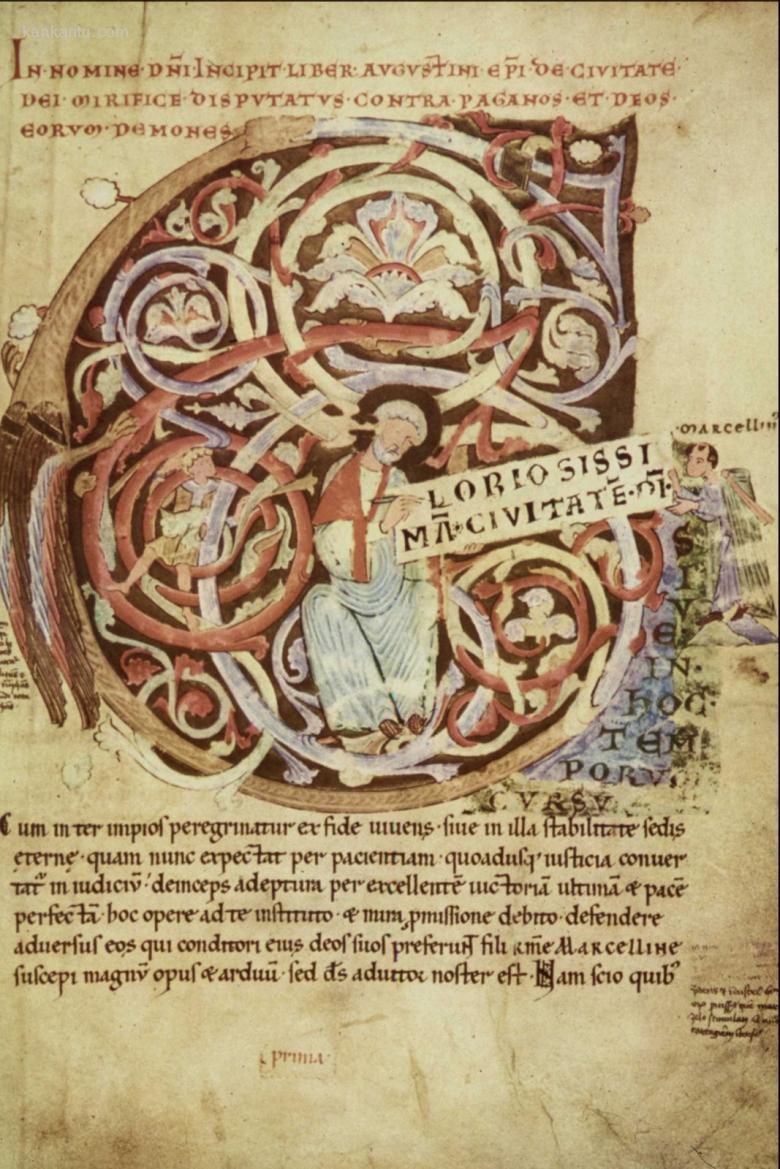 kankantu.com
IN·NOMINE·DÑI·INCIPIT·LIBER·AVGVSTINI·EP̄I·DE·CIVITATE·
DEI·MIRIFICE·DISPVTATVS·CONTRA·PAGANOS·ET·DEOS·
EORVM·DEMONES
·MARCELLIN
LORIOSISSI
MĀ·CIVITATĒ·DĪ·
SIVE
IN·
hOC·
TEM
PORV̄
CVRSV
Cum inter impios peregrinatur ex fide uiuens·siue in illa stabilitate sedis
eternę·quam nunc expectat per pacientiam·quoadusq' iusticia conuer
tat᷑ in iudiciū·deinceps adeptura per excellentē uictoriā ultimā & pacē
perfectā·hoc opere ad te instituto·& mira ꝓmissione debito·defendere
aduersus eos qui conditori eius deos suos preferunt fili km̄e Marcelline
suscepi magnū opus & arduū·sed d̄s adiutor noster est·Nam scio quib᷒
prima·